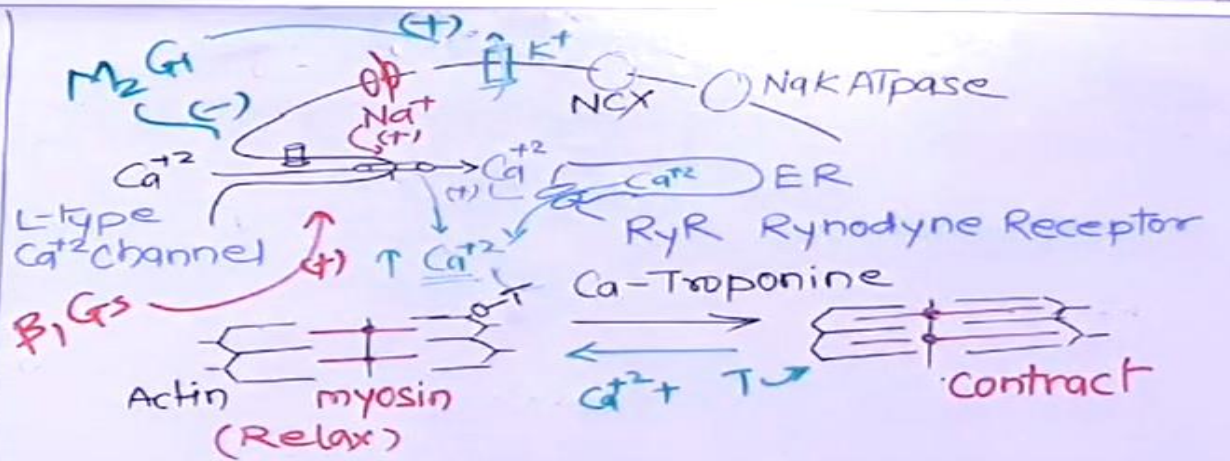 (+)
M₂ Gi
K⁺
NCX
NaK ATpase
(-)
Na⁺
(+)
Ca⁺²
Ca⁺²
(+)
Ca⁺²
ER
L-type
Ca⁺² channel
RyR Rynodyne Receptor
(+)
↑ Ca⁺²
β₁ Gs
T
Ca-Troponine
Actin myosin
(Relax)
Ca⁺² + T
Contract